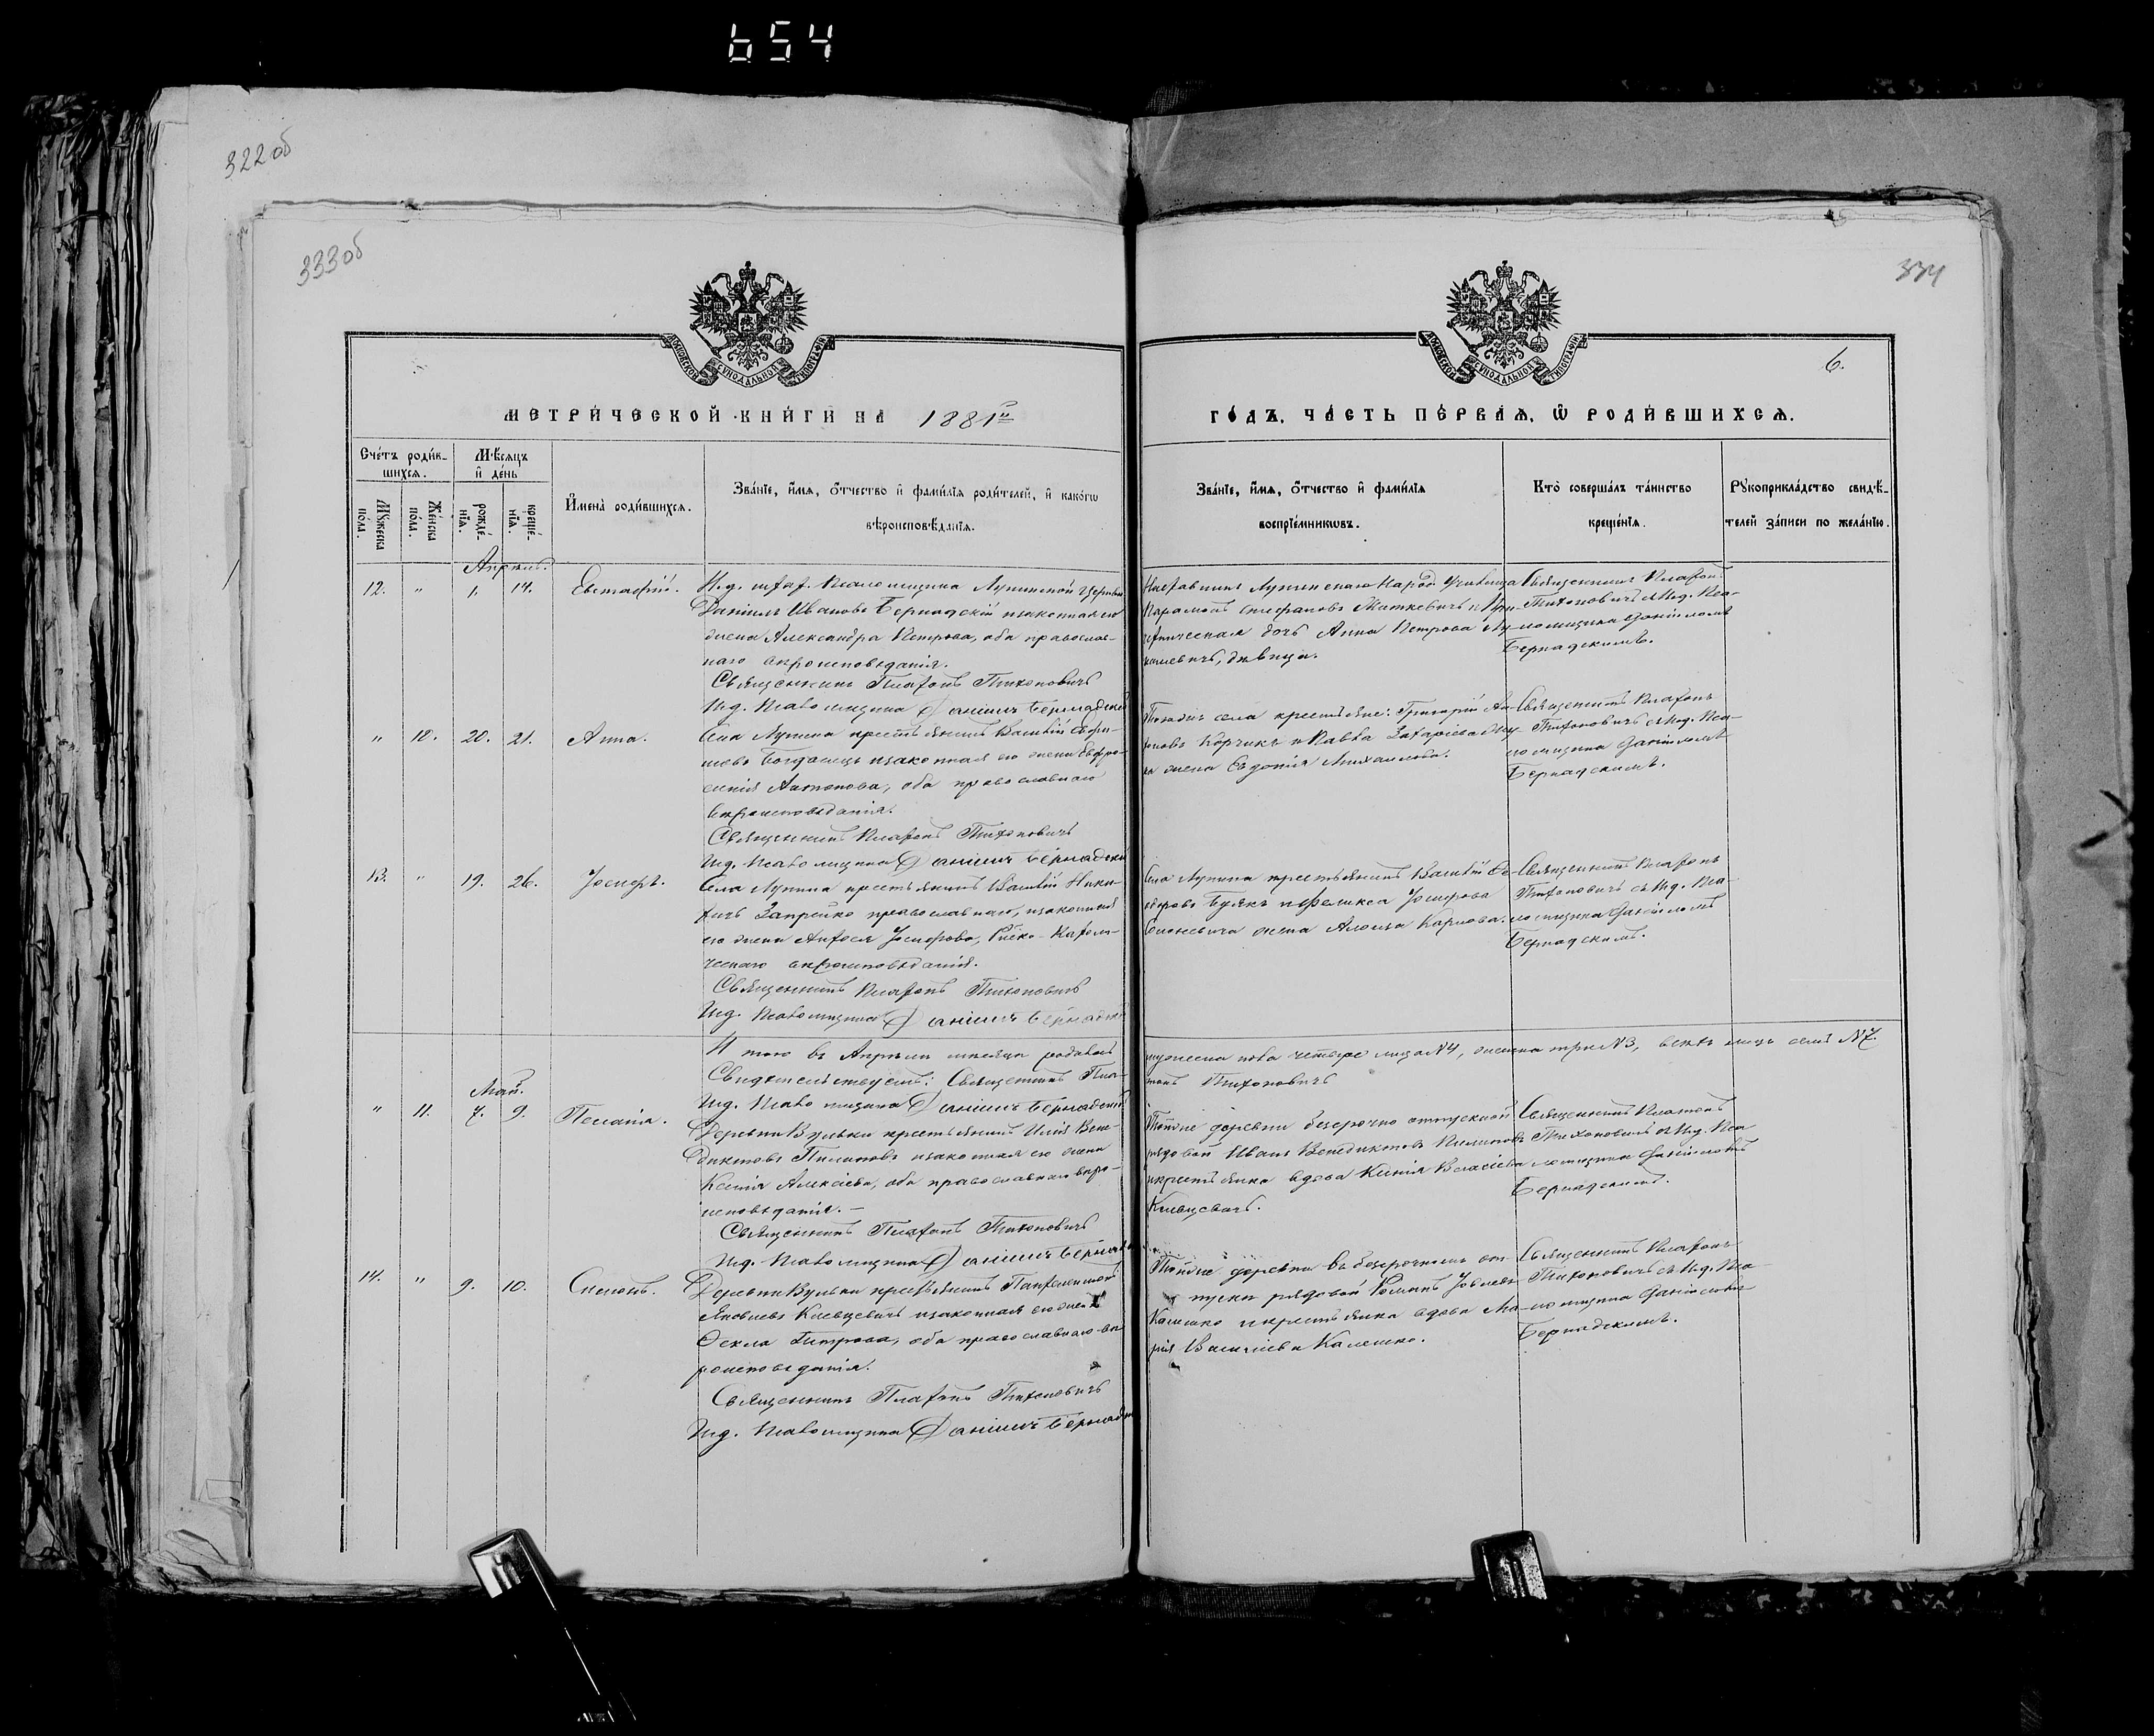 654
322об
333об
334
6.
МОСКОВСКОЙ СУНОДАЛЬНОЙ ТИПОГРАФІИ
МОСКОВСКОЙ СУНОДАЛЬНОЙ ТИПОГРАФІИ
МЕТРИ́ЧЕСКОЙ КНИ́ГИ НА 1881й
ГО́ДЪ, ЧА́СТЬ ПЕ́РВАѦ, Ѿ РОДИ́ВШИХСѦ.
Сче́тъ роди́в-
шихсѧ.
Мѣ́сяцъ
и҆ де́нь
Мꙋ́жеска по́ла.
Же́нска по́ла.
рожде́-
нїѧ.
креще́-
нїѧ.
И҆мена̀ роди́вшихсѧ.
Зва́нїе, и҆́мѧ, ѻ҆́тчество и҆ фами́лїѧ роди́телей, и҆ како́гѡ
вѣроисповѣ́данїѧ.
Зва́нїе, и҆́мѧ, ѻ҆́тчество и҆ фами́лїѧ
воспрїе́мникѡвъ.
Кто̀ соверша́лъ та́инство
креще́нїѧ.
Рꙋкоприкла́дство свидѣ́-
телей за́писи по жела́нїю.
Апрѣль.
12. " 1. 14. Евстафій.
И.д. штат. Псаломщика Лунинской Церкви
Даніилъ Ивановъ Бернадскій и законная его
жена Александра Петрова, оба православ-
наго вѣроисповѣданія.
Священникъ Платонъ Тихоновичъ
И.д. Псаломщика Даніилъ Бернадскій
Наставникъ Лунинскаго Народ. Училища
Парамонъ Стефановъ
дочь Анна Петрова
девица.
Священникъ Платонъ
Тихоновичъ съ И.д. Пса-
ломщика Даніиломъ
Бернадскимъ.
" 10. 20. 21. Анна.
Села Лунина крестьянинъ Василій
Богданецъ и законная его жена Евфро-
синія Антонова, оба православнаго
вѣроисповѣданія.
Священникъ Платонъ Тихоновичъ
И.д. Псаломщика Даніилъ Бернадскій
села крестьяне: Григорій Ан-
тоновъ Корчикъ и Павла Захаріева
жена Евдокія Михаилова.
Священникъ Платонъ
Тихоновичъ съ И.д. Пса-
ломщика Даніиломъ
Бернадскимъ.
13. " 19. 26. Іосифъ.
Села Лунина крестьянинъ Василій Ники-
тинъ Запрейко православнаго, и законная
его жена Анфоля Іосифова, Римско-Католи-
ческаго вѣроисповѣданія.
Священникъ Платонъ Тихоновичъ
И.д. Псаломщика Даніилъ Бернадскій
Села Лунина крестьянинъ Василій Фе-
доровъ Булкъ и Феликса Іосифова
жена Алоиза Карлова.
Священникъ Платонъ
Тихоновичъ съ И.д. Пса-
ломщика Даніиломъ
Бернадскимъ.
Итого въ Апрѣлѣ мѣсяцѣ родилось
мужеска пола четыре лица №4, женска три №3, всѣхъ лицъ семь №7.
Свидѣтельствуемъ: Священникъ Пла-
тонъ Тихоновичъ
И.д. Псаломщика Даніилъ Бернадскій
Май.
" 11. 7. 9. Пелагія.
Деревни Вульки крестьянинъ Илія Вене-
диктовъ Пилиповъ и законная его жена
Ксенія Алексіева, оба православнаго вѣро-
исповѣданія.
Священникъ Платонъ Тихоновичъ
И.д. Псаломщика Даніилъ Бернадскій
Тойже деревни безсрочно отпускной
рядовой Иванъ Венедиктовъ Пилиповъ
и крестьянка вдова Ксенія Власіева
Киевцевичъ.
Священникъ Платонъ
Тихоновичъ съ И.д. Пса
ломщика Даніиломъ
Бернадскимъ.
14. " 9. 10. Симеонъ.
Деревни Вульки крестьянинъ Пантелеимонъ
Яковлевъ Киевцевичъ и законная его жена
Фекла Петрова, оба православнаго вѣ-
роисповѣданія.
Священникъ Платонъ Тихоновичъ
И.д. Псаломщика Даніилъ Бернадскій
Тойже деревни въ безсрочномъ от-
пуски рядовой Романъ Іовлевъ
Калешко и крестьянка вдова Ма-
рія Василіева Калешко.
Священникъ Платонъ
Тихоновичъ съ И.д. Пса-
ломщика Даніиломъ
Бернадскимъ.